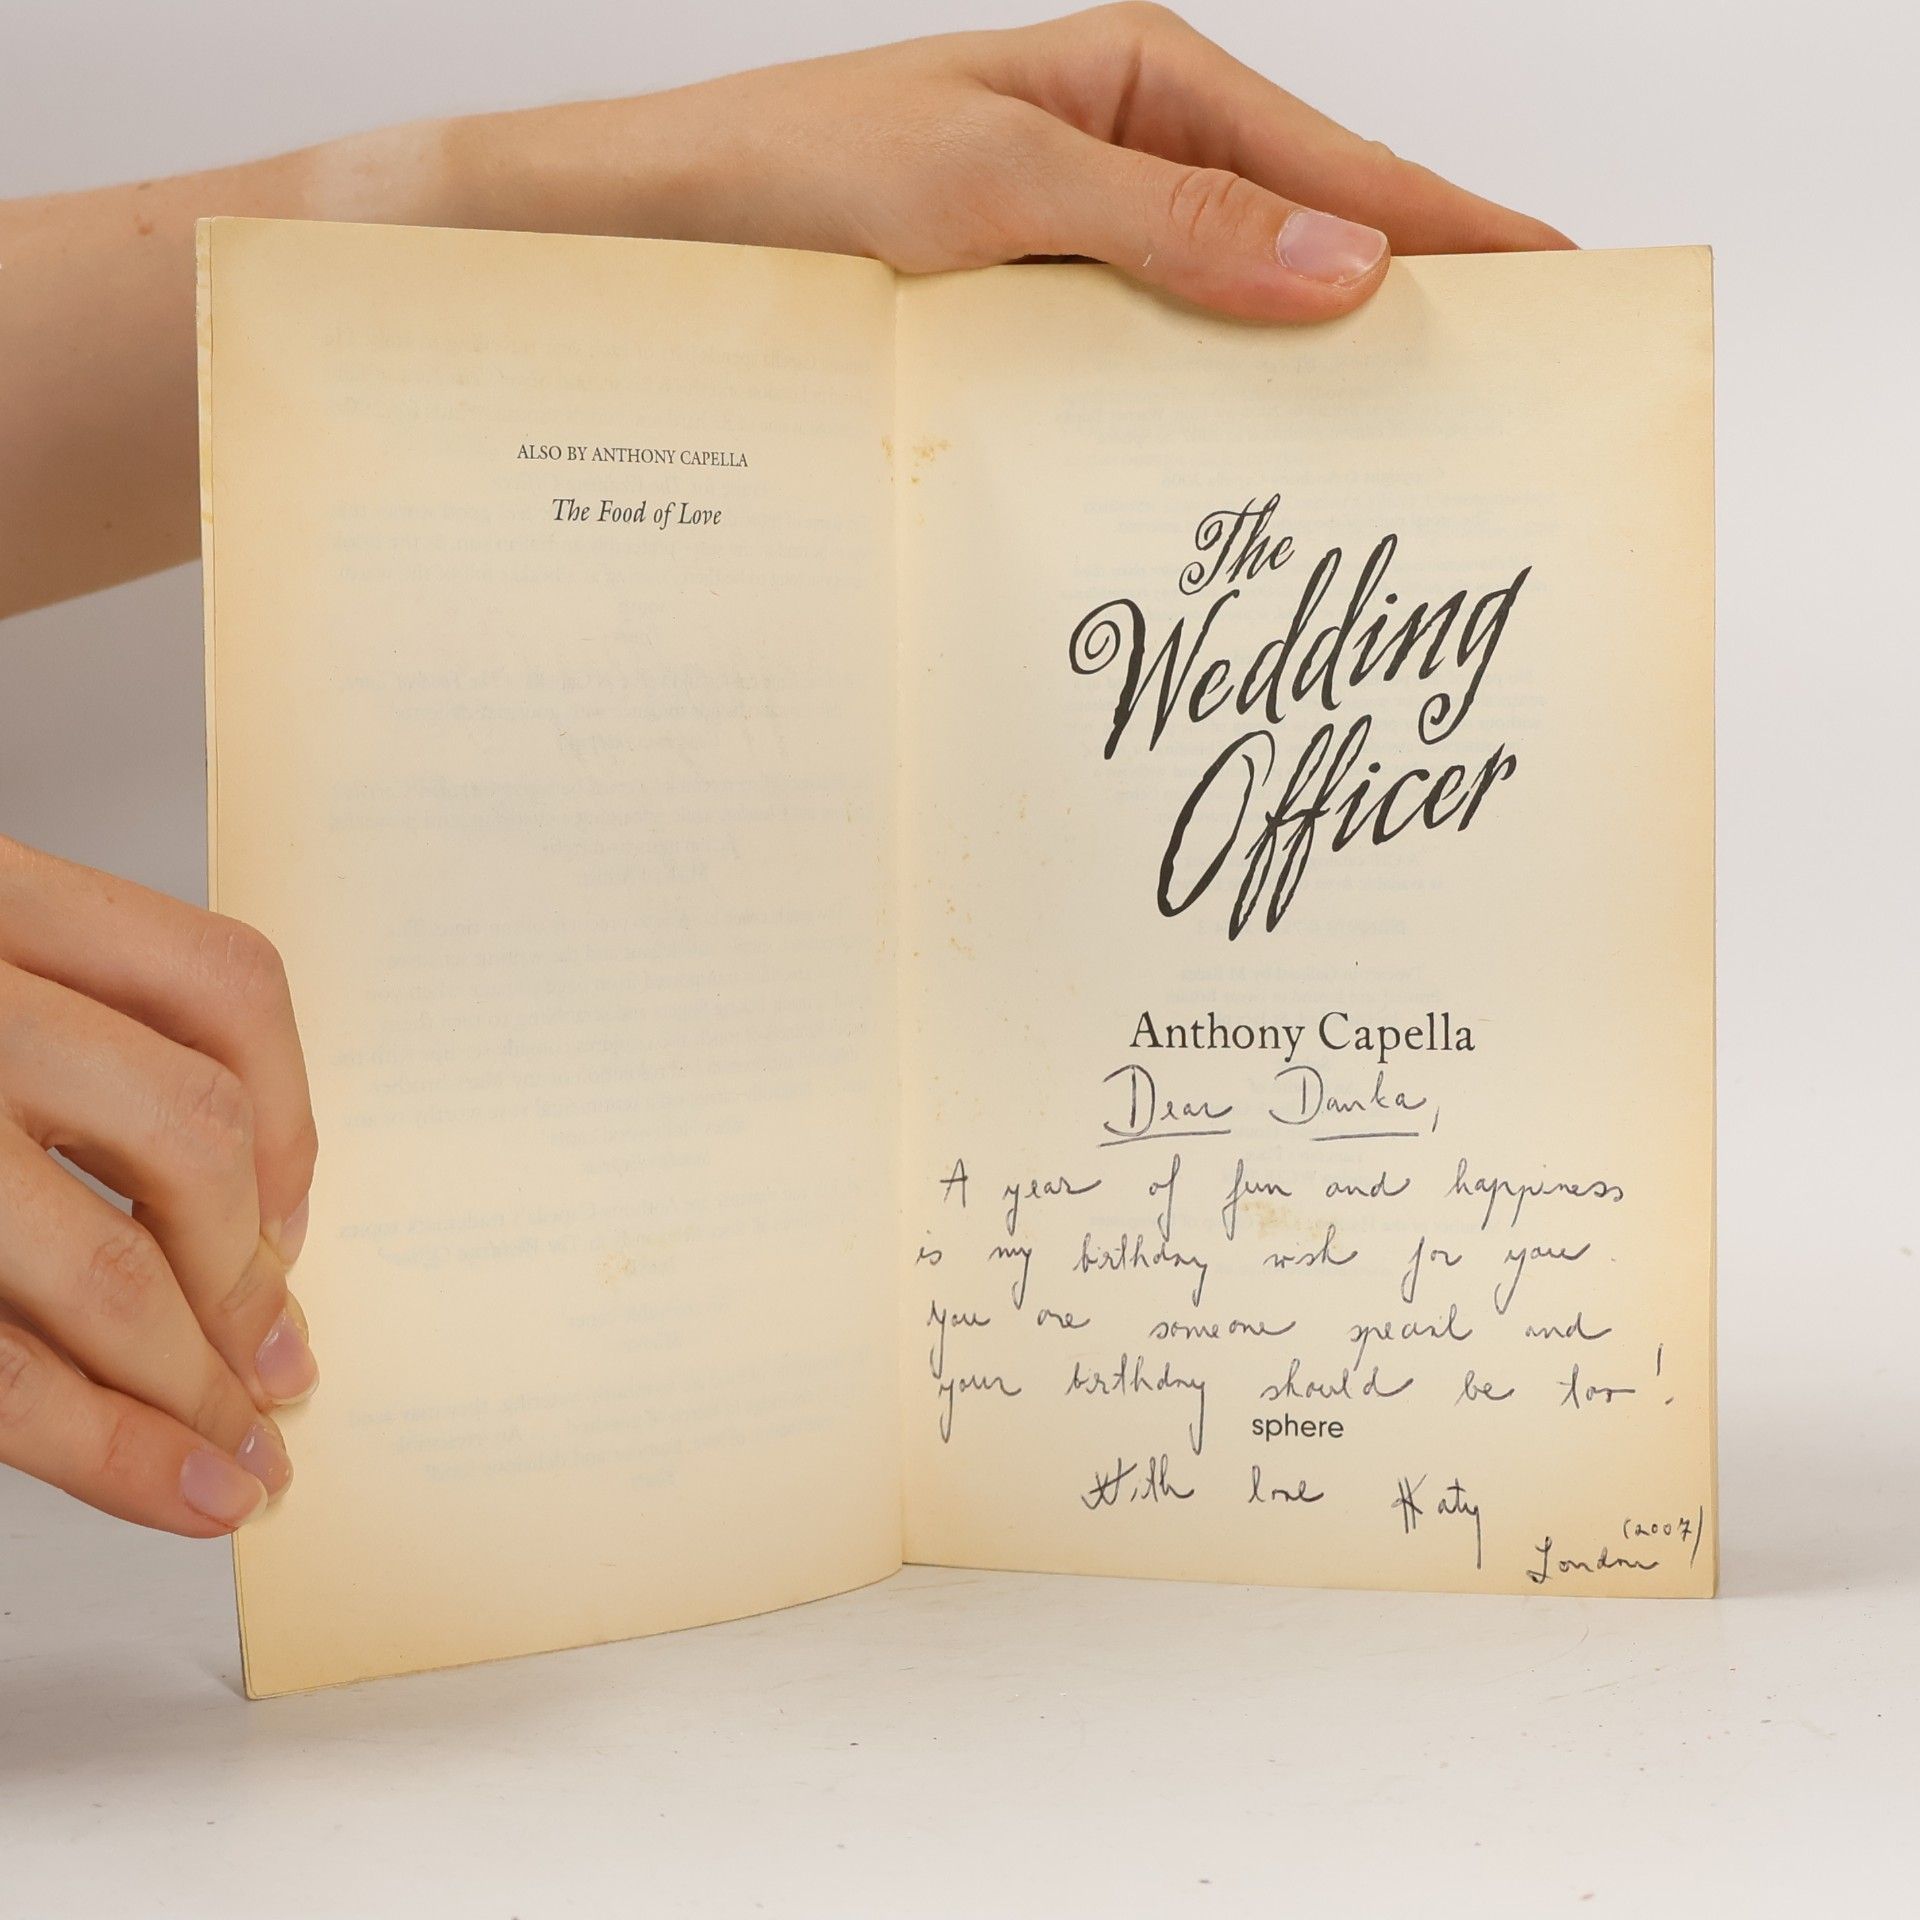 ALSO BY ANTHONY CAPELLA
The Food of Love
The
Wedding
Officer
Anthony Capella
Dear Danka,
A year of fun and happiness
is my birthday wish for you.
You are someone special and
your birthday should be too!
sphere
With love Katy
(2007)
London